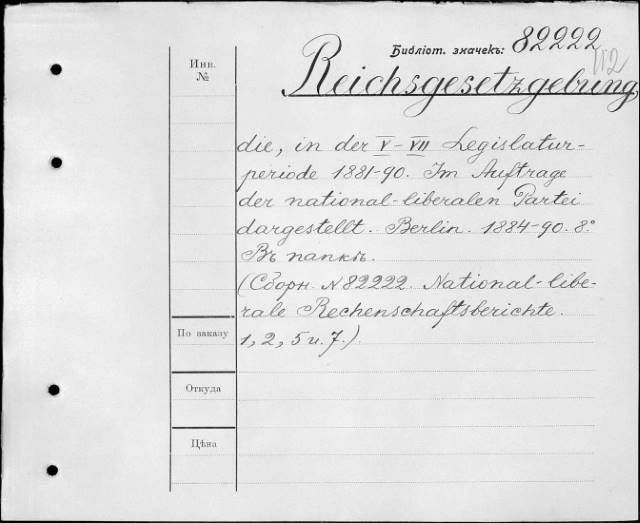 Библіот. значекъ: 82222
Инв.
№
Reichsgesetzgebung
die, in der V-VII Legislatur-
periode 1881-90. Im Auftrage
der national-liberalen Partei
dargestellt. Berlin. 1884-90. 8°
Въ папкѣ.
(Сборн. N 82222. National-libe-
rale Rechenschaftsberichte.
По заказу
1, 2, 5 u. 7.)
Откуда
Цѣна